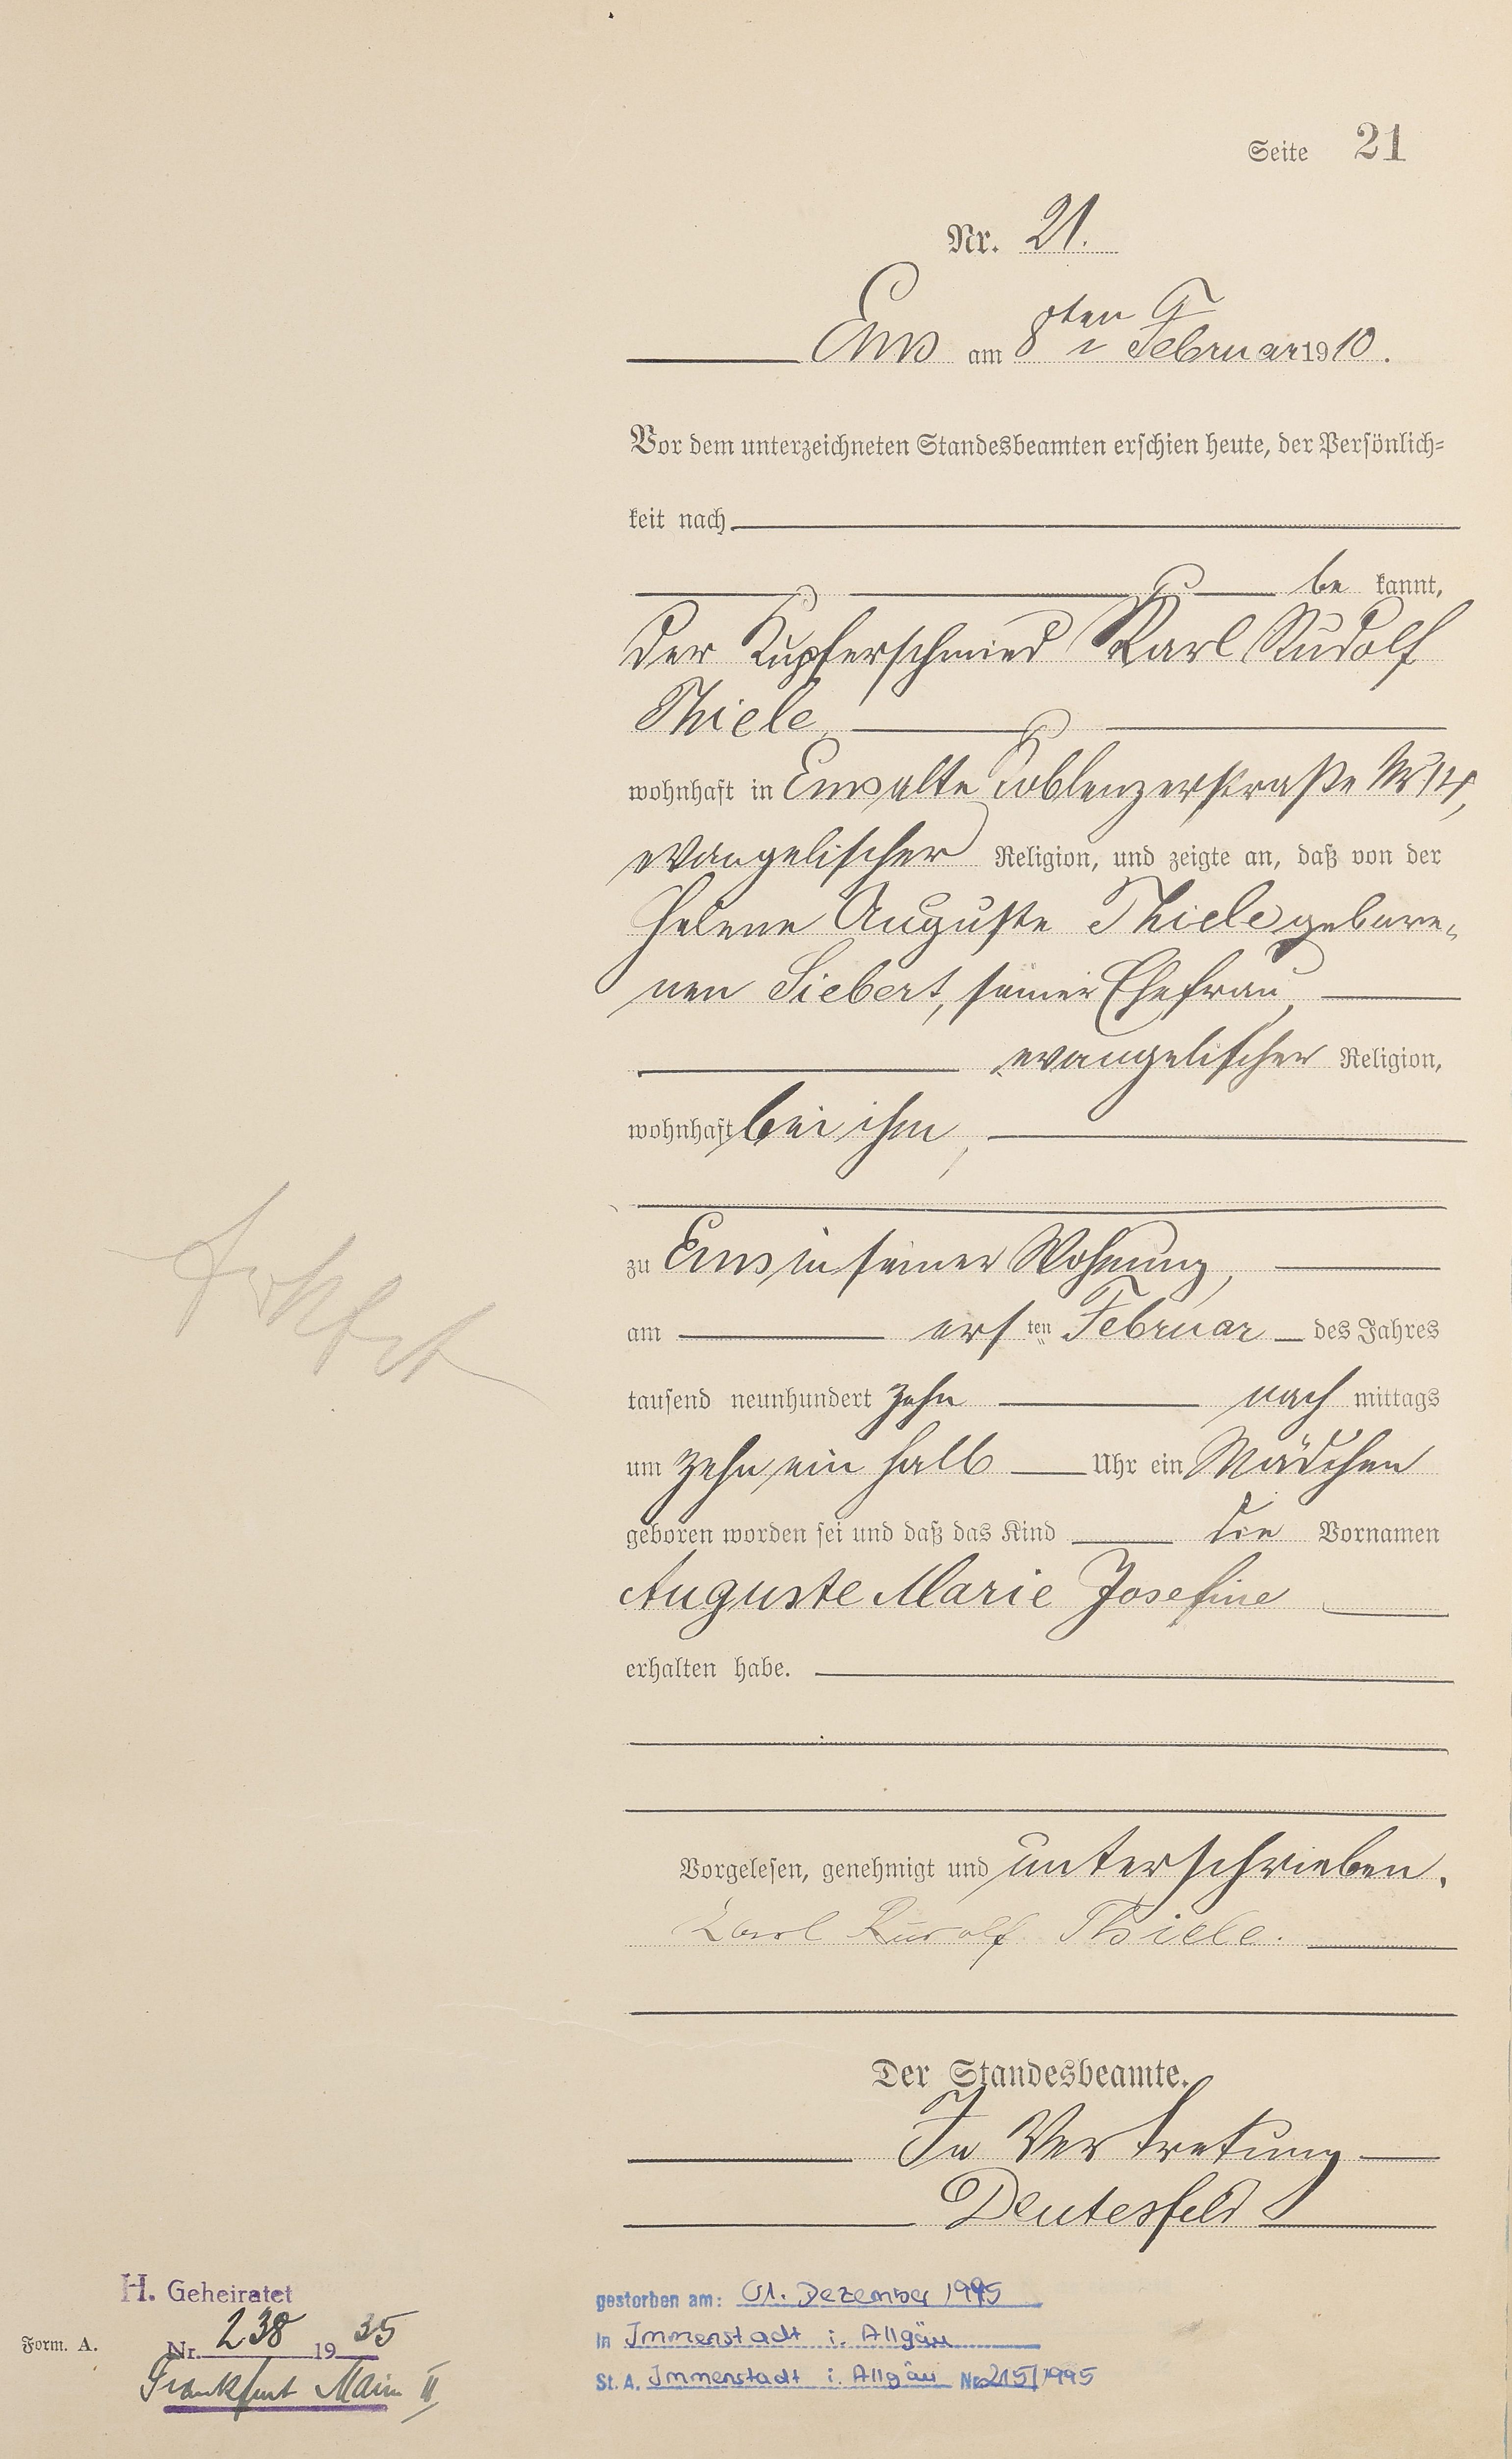 Seite 21
Nr. 21.
Ems am 8ten Februar 1910.
Vor dem unterzeichneten Standesbeamten erschien heute, der Persönlich-
keit nach
be kannt,
der Kupferschmied Karl Rudolf
Thiele,
wohnhaft in Ems alte Koblenzerstraße Nr 14,
evangelischer Religion, und zeigte an, daß von der
Helene Auguste Thiele gebore-
nen Siebert, seiner Ehefrau,
evangelischer Religion,
wohnhaft bei ihm,
zu Ems in seiner Wohnung,
am ersten Februar des Jahres
tausend neunhundert zehn nach mittags
um zehn ein halb Uhr ein Mädchen
geboren worden sei und daß das Kind die Vornamen
Auguste Marie Josefine
erhalten habe.
Vorgelesen, genehmigt und unterschrieben.
Karl Rudolf Thiele.
Der Standesbeamte.
In Vertretung
Deutesfeld
H. Geheiratet
Nr. 238 1935
Frankfurt Main II
Form. A.
gestorben am: 01. Dezember 1995
in Immenstadt i. Allgäu
St. A. Immenstadt i. Allgäu Nr. 215/1995